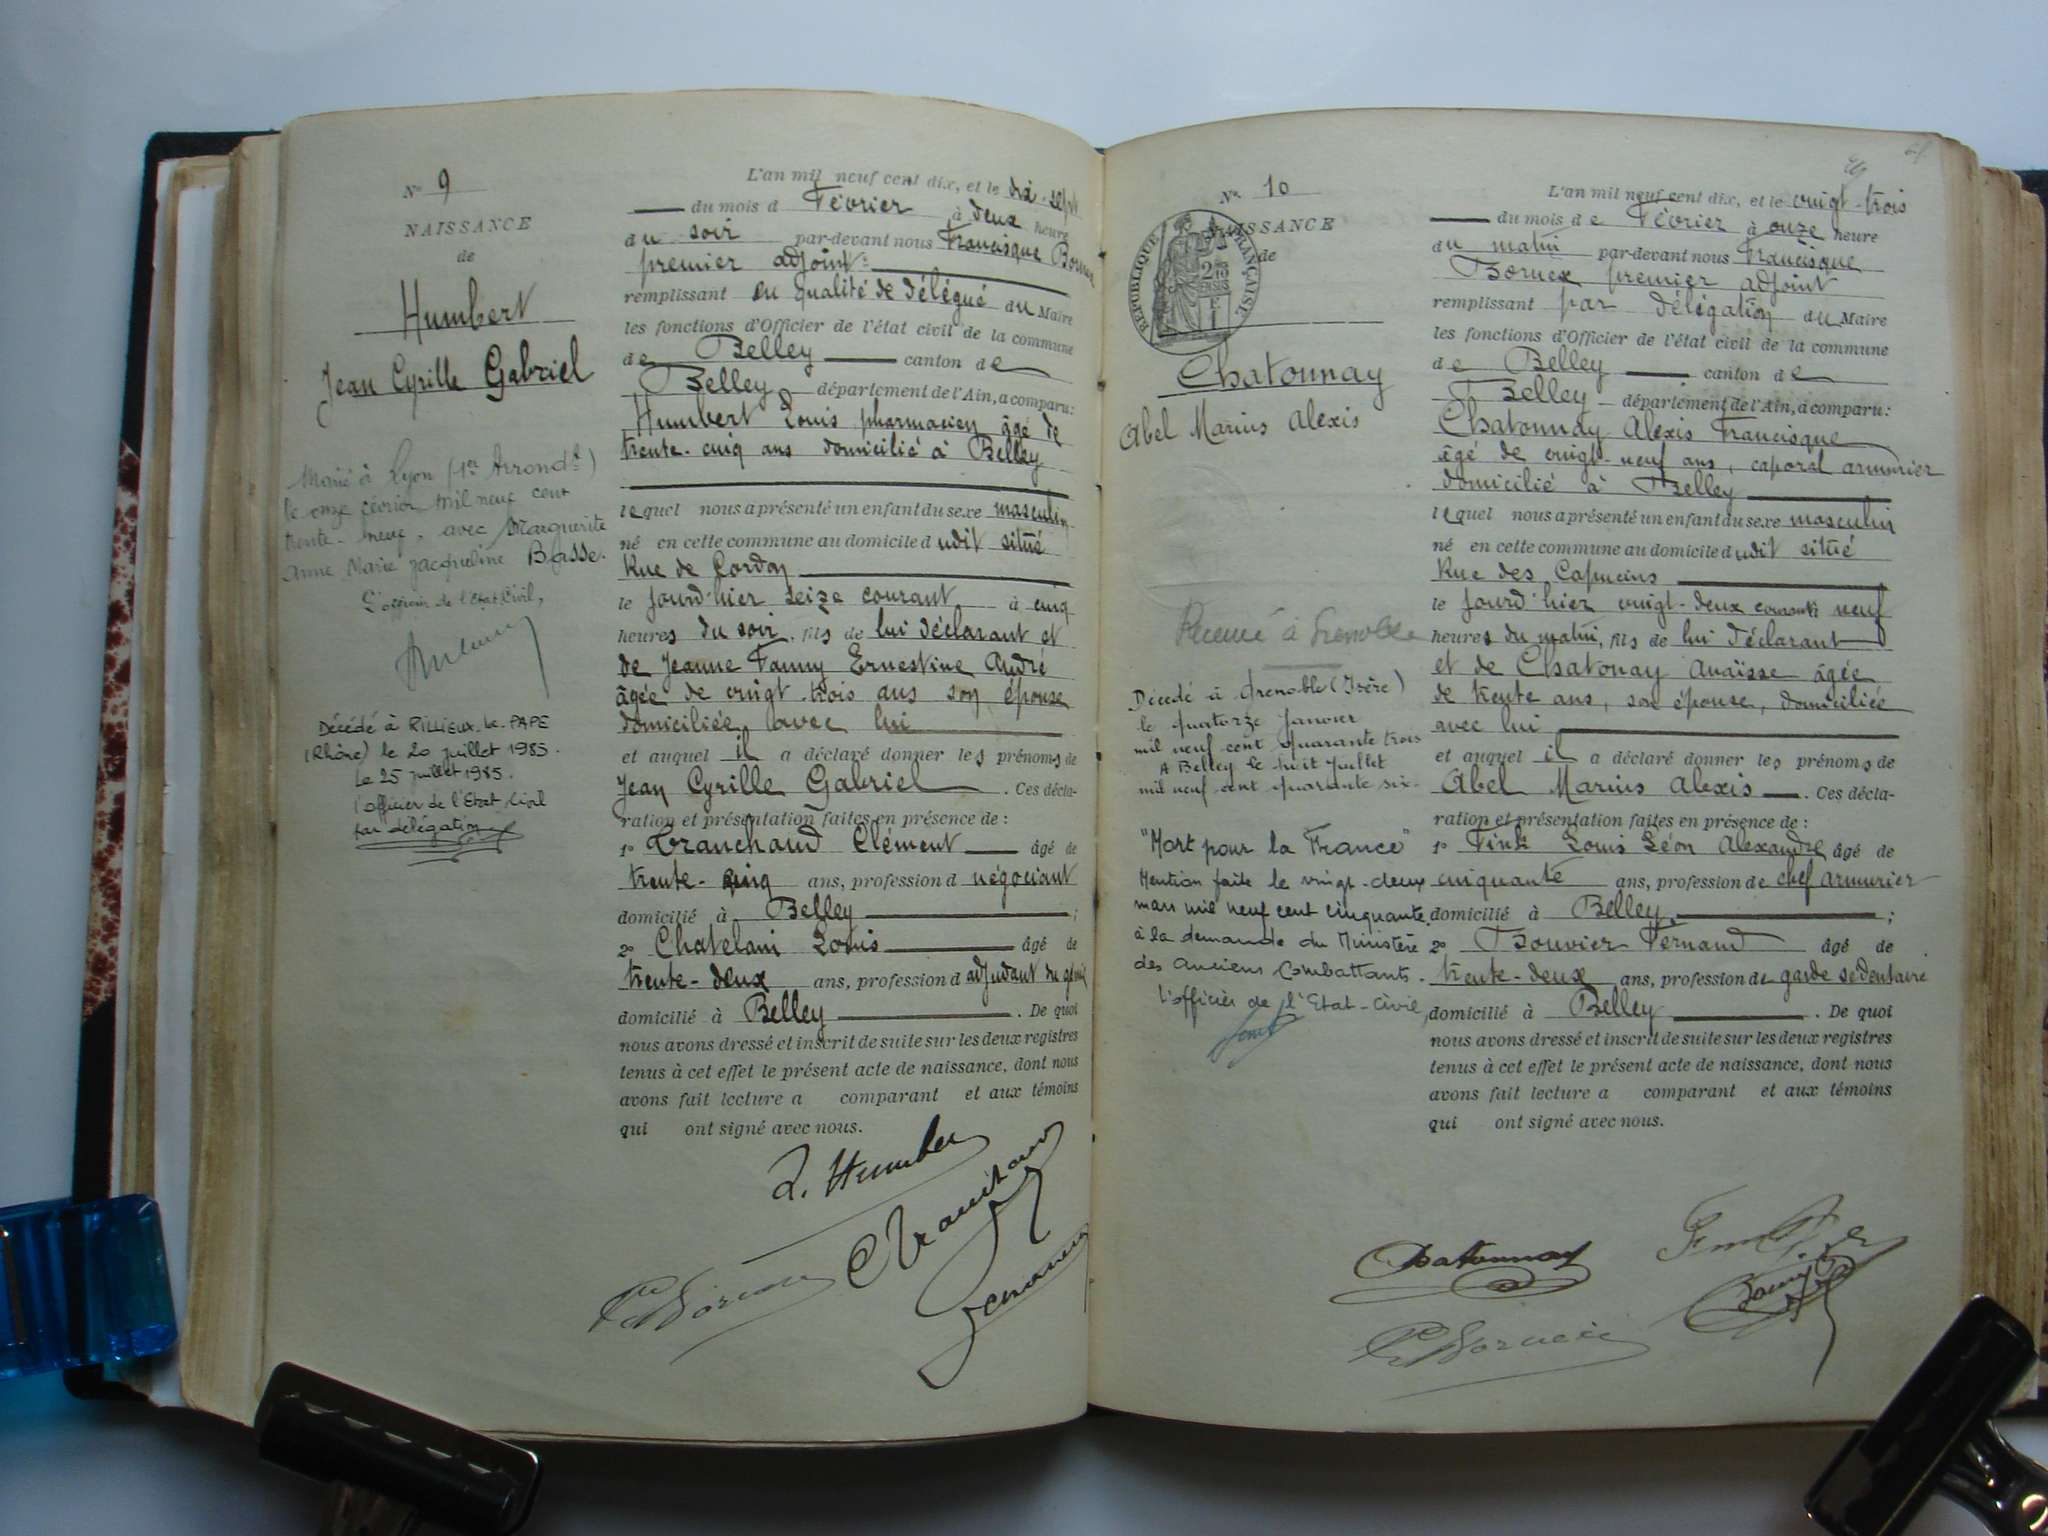 N° 9
NAISSANCE
de
Humbert
Jean Cyrille Gabriel
Marié à Lyon (1er Arrondt)
le onze février mil neuf cent
trente-neuf, avec Marguerite
Anne Marie Jacqueline Basse.
L'officier de l'Etat Civil,
Décédé à RILLIEUX-la-PAPE
(Rhône) le 20 juillet 1985.
Le 25 juillet 1985.
l'officier de l'Etat Civil
par délégation
L'an mil neuf cent dix, et le dix-sept
du mois d Février à deux heure
du soir par-devant nous Francisque Bornex
premier adjoint
remplissant en qualité de délégué du Maire
les fonctions d'Officier de l'état civil de la commune
de Belley canton de
Belley département de l'Ain, a comparu:
Humbert Louis pharmacien âgé de
trente-cinq ans domicilié à Belley
lequel nous a présenté un enfant du sexe masculin
né en cette commune au domicile dudit situé
Rue de Cordon
le jourd'hier seize courant à cinq
heures du soir, fils de lui déclarant et
de Jeanne Fanny Ernestine André
âgée de vingt-trois ans son épouse
domiciliée avec lui
et auquel il a déclaré donner les prénoms de
Jean Cyrille Gabriel. Ces décla-
ration et présentation faites en présence de :
1° Tranchand Clément âgé de
trente-cinq ans, profession d négociant
domicilié à Belley ;
2° Chatelain Louis âgé de
trente-deux ans, profession d adjudant du génie
domicilié à Belley. De quoi
nous avons dressé et inscrit de suite sur les deux registres
tenus à cet effet le présent acte de naissance, dont nous
avons fait lecture a comparant et aux témoins
qui ont signé avec nous.
L. Humbert
N° 10
NAISSANCE
de
REPUBLIQUE FRANÇAISE
Chatonnay
Abel Marius Alexis
Recensé à Grenoble
Décédé à Grenoble (Isère)
le quatorze Janvier
mil neuf cent quarante trois
A Belley le huit Juillet
mil neuf cent quarante six.
"Mort pour la France"
Mention faite le vingt-deux
mars mil neuf cent cinquante
à la demande du Ministère
des Anciens Combattants.
L'officier de l'Etat-Civil,
L'an mil neuf cent dix, et le vingt-trois
du mois de Février à onze heure
du matin par-devant nous Francisque
Bornex premier adjoint
remplissant par délégation du Maire
les fonctions d'Officier de l'état civil de la commune
de Belley canton de
Belley département de l'Ain, a comparu:
Chatonnay Alexis Francisque
âgé de vingt-neuf ans, caporal armurier
domicilié à Belley
lequel nous a présenté un enfant du sexe masculin
né en cette commune au domicile dudit situé
Rue des Capucins
le jourd'hier vingt-deux courant à neuf
heures du matin, fils de lui déclarant
et de Chatonay Anaïsse âgée
de trente ans, son épouse, domiciliée
avec lui
et auquel il a déclaré donner les prénoms de
Abel Marius Alexis. Ces décla-
ration et présentation faites en présence de :
1° Fink Louis Léon Alexandre âgé de
cinquante ans, profession de chef armurier
domicilié à Belley ;
2° Bouvier Fernand âgé de
trente-deux ans, profession de garde sédentaire
domicilié à Belley. De quoi
nous avons dressé et inscrit de suite sur les deux registres
tenus à cet effet le présent acte de naissance, dont nous
avons fait lecture a comparant et aux témoins
qui ont signé avec nous.
Chatonnay